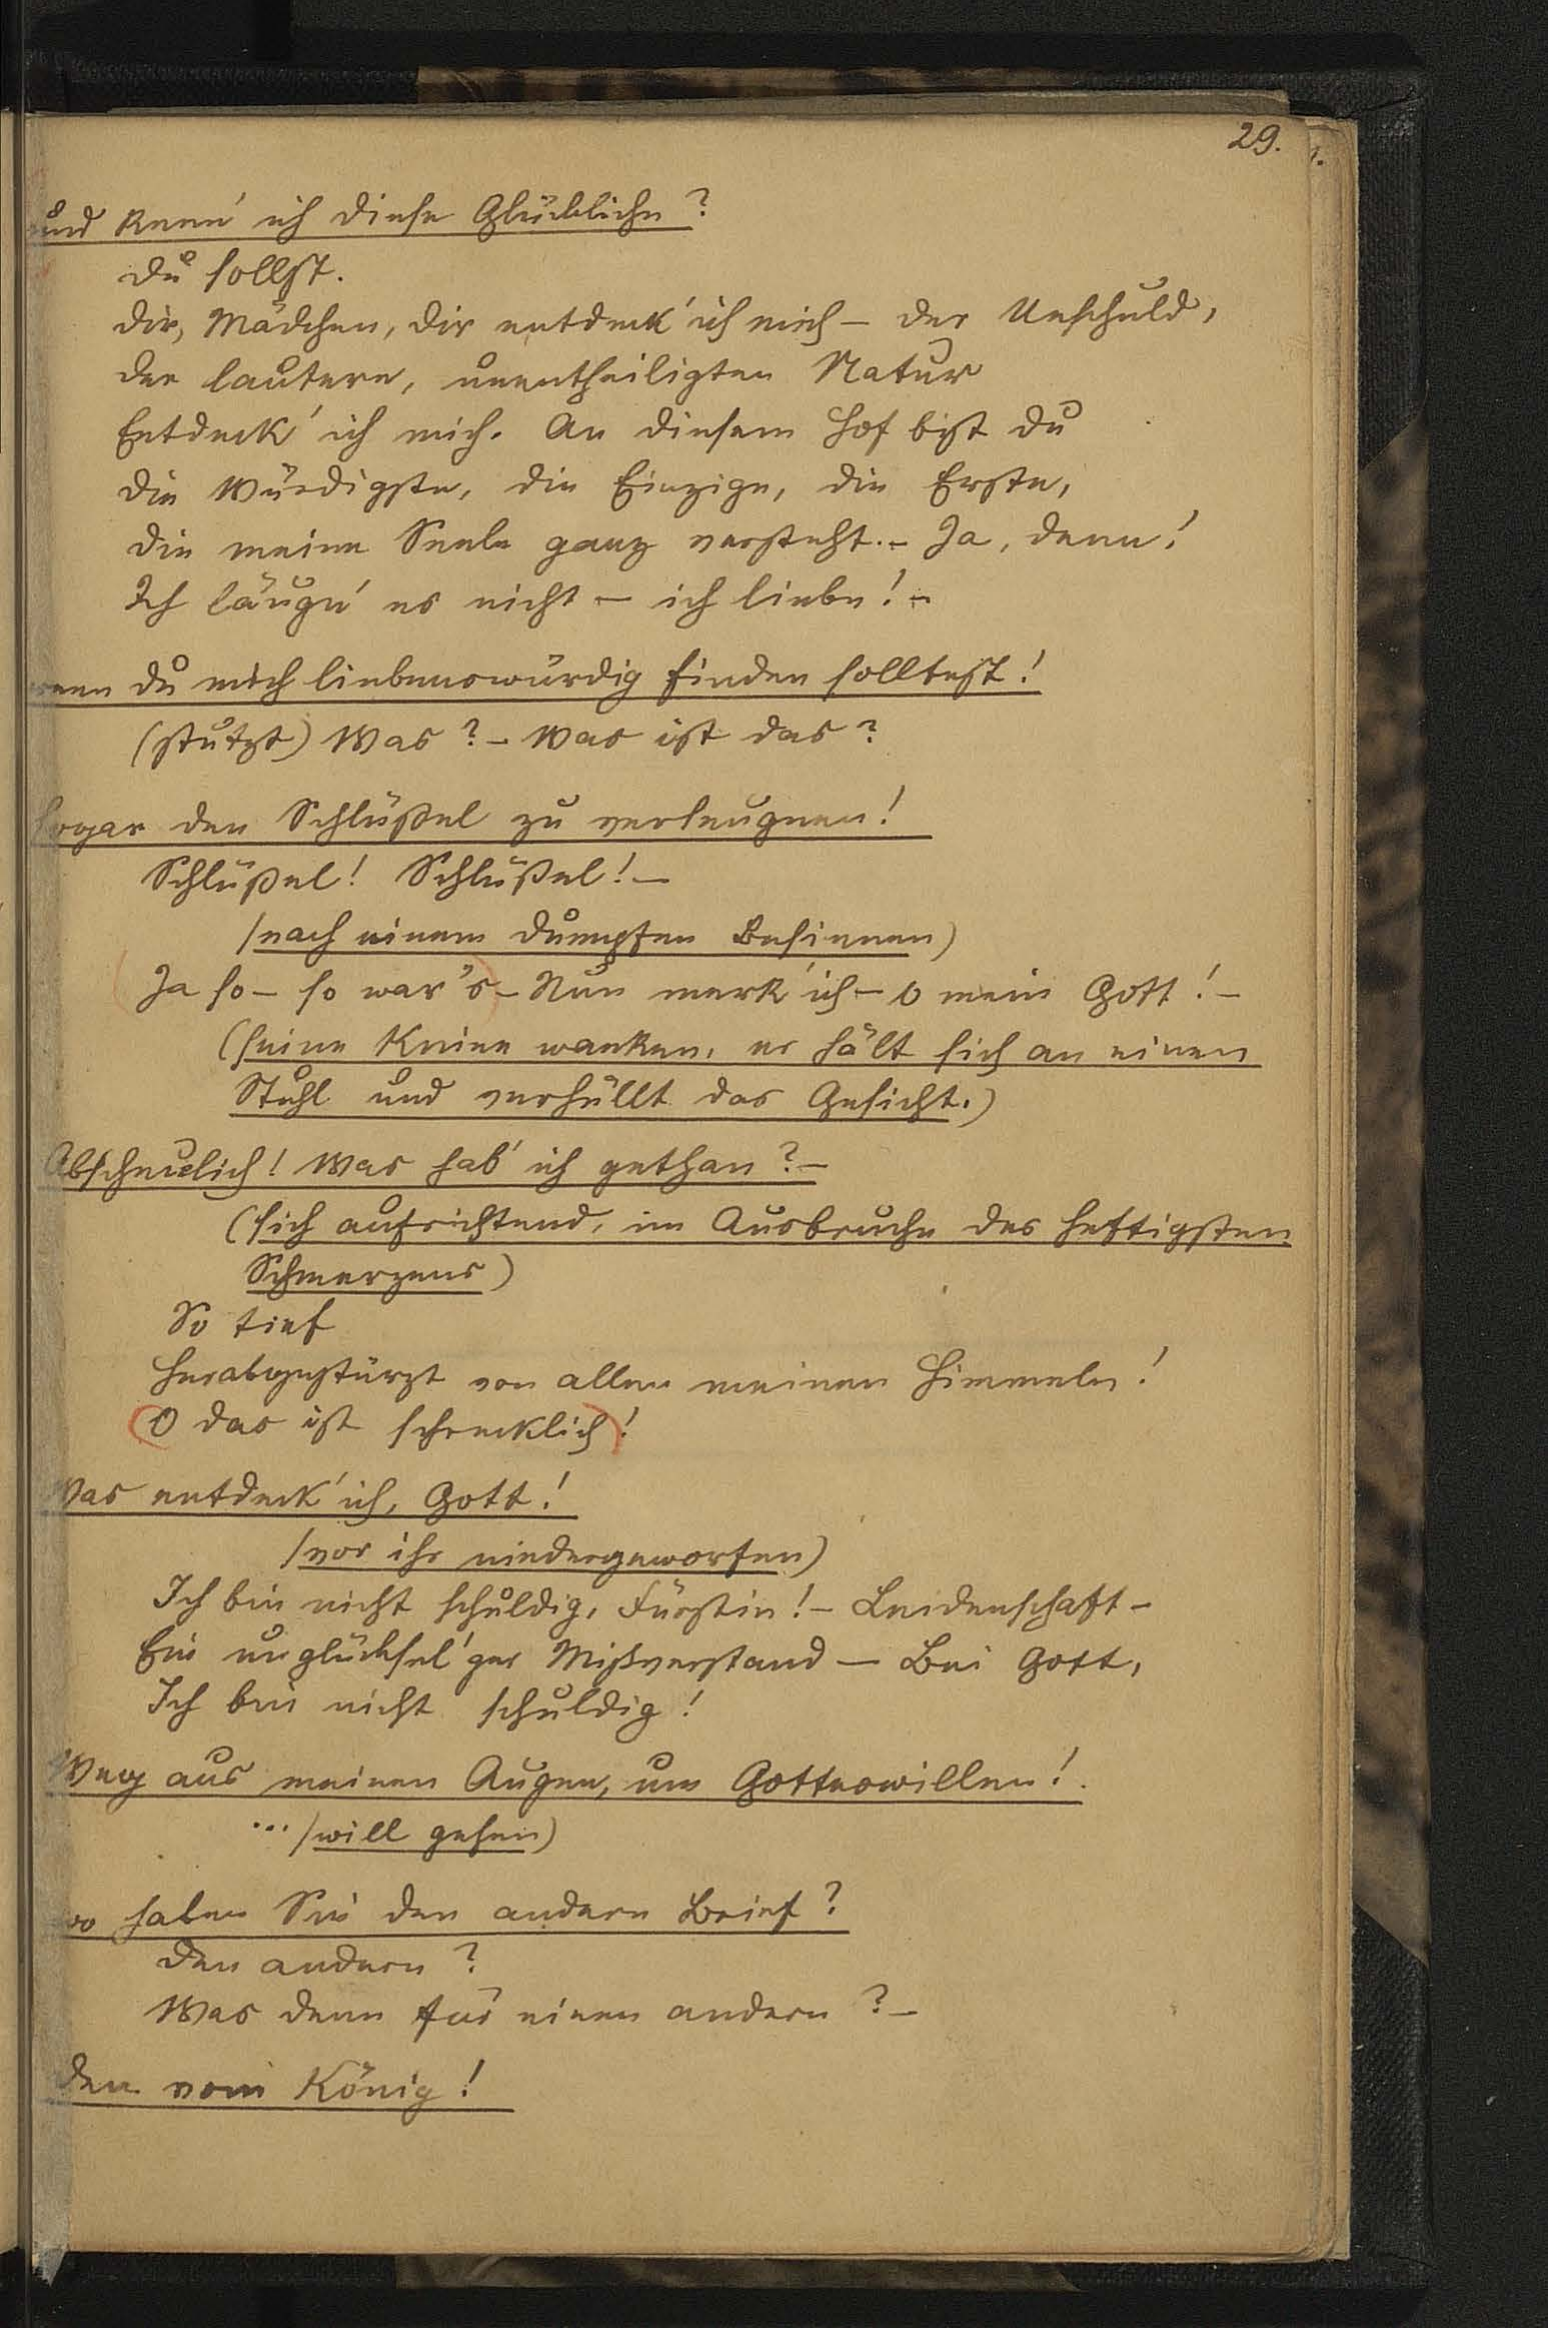 29.
und kenn' ich diese Glückliche?
Du sollst.
Dir, Mädchen, dir entdeck' ich mich – der Unschuld,
der lautern, unentheiligten Natur
Entdeck' ich mich. An diesem Hof bist du
die Würdigste, die Einzige, die Erste,
die meine Seele ganz versteht. – Ja, denn!
Ich läugn' es nicht – ich liebe! –
wenn du mich liebenswürdig finden solltest!
(stutzt) Was? – Was ist das?
Sogar den Schlüßel zu verleugnen!
Schlüßel! Schlüßel! –
(nach einem dumpfen Besinnen)
Ja so – so war's – Nun merk' ich – o mein Gott! –
(seine Kniee wanken, er hält sich an einen
Stuhl und verhüllt das Gesicht.)
Abscheulich! Was hab' ich gethan? –
(sich aufrichtend, im Ausbruche des heftigsten
Schmerzens)
So tief
herabgestürzt von allen meinen Himmeln!
O das ist schrecklich!
Was entdeck' ich, Gott!
(vor ihr niedergeworfen)
Ich bin nicht schuldig, Fürstin! – Leidenschaft –
Ein unglücksel'ger Mißverstand – Bei Gott,
Ich bin nicht schuldig!
Weg aus meinen Augen, um Gotteswillen!
... (will gehen)
wo haben Sie den andern Brief?
Den andern?
Was denn für einen andern? –
Den vom König!